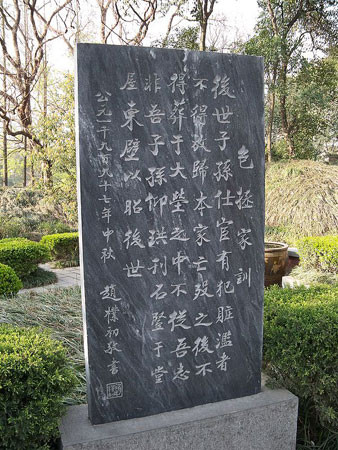 包拯家訓
後世子孫仕宦有犯贓濫者
不得放歸本家亡歿之後不
得葬于大塋之中不從吾志
非吾子孫仰珙刊石豎于堂
屋東壁以昭後世
公元一千九百九十七年中秋 趙樸初敬書